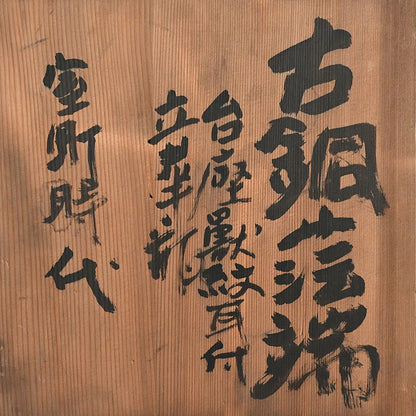 古銅芸端
台座獸紋耳付
立華瓶
室町時代